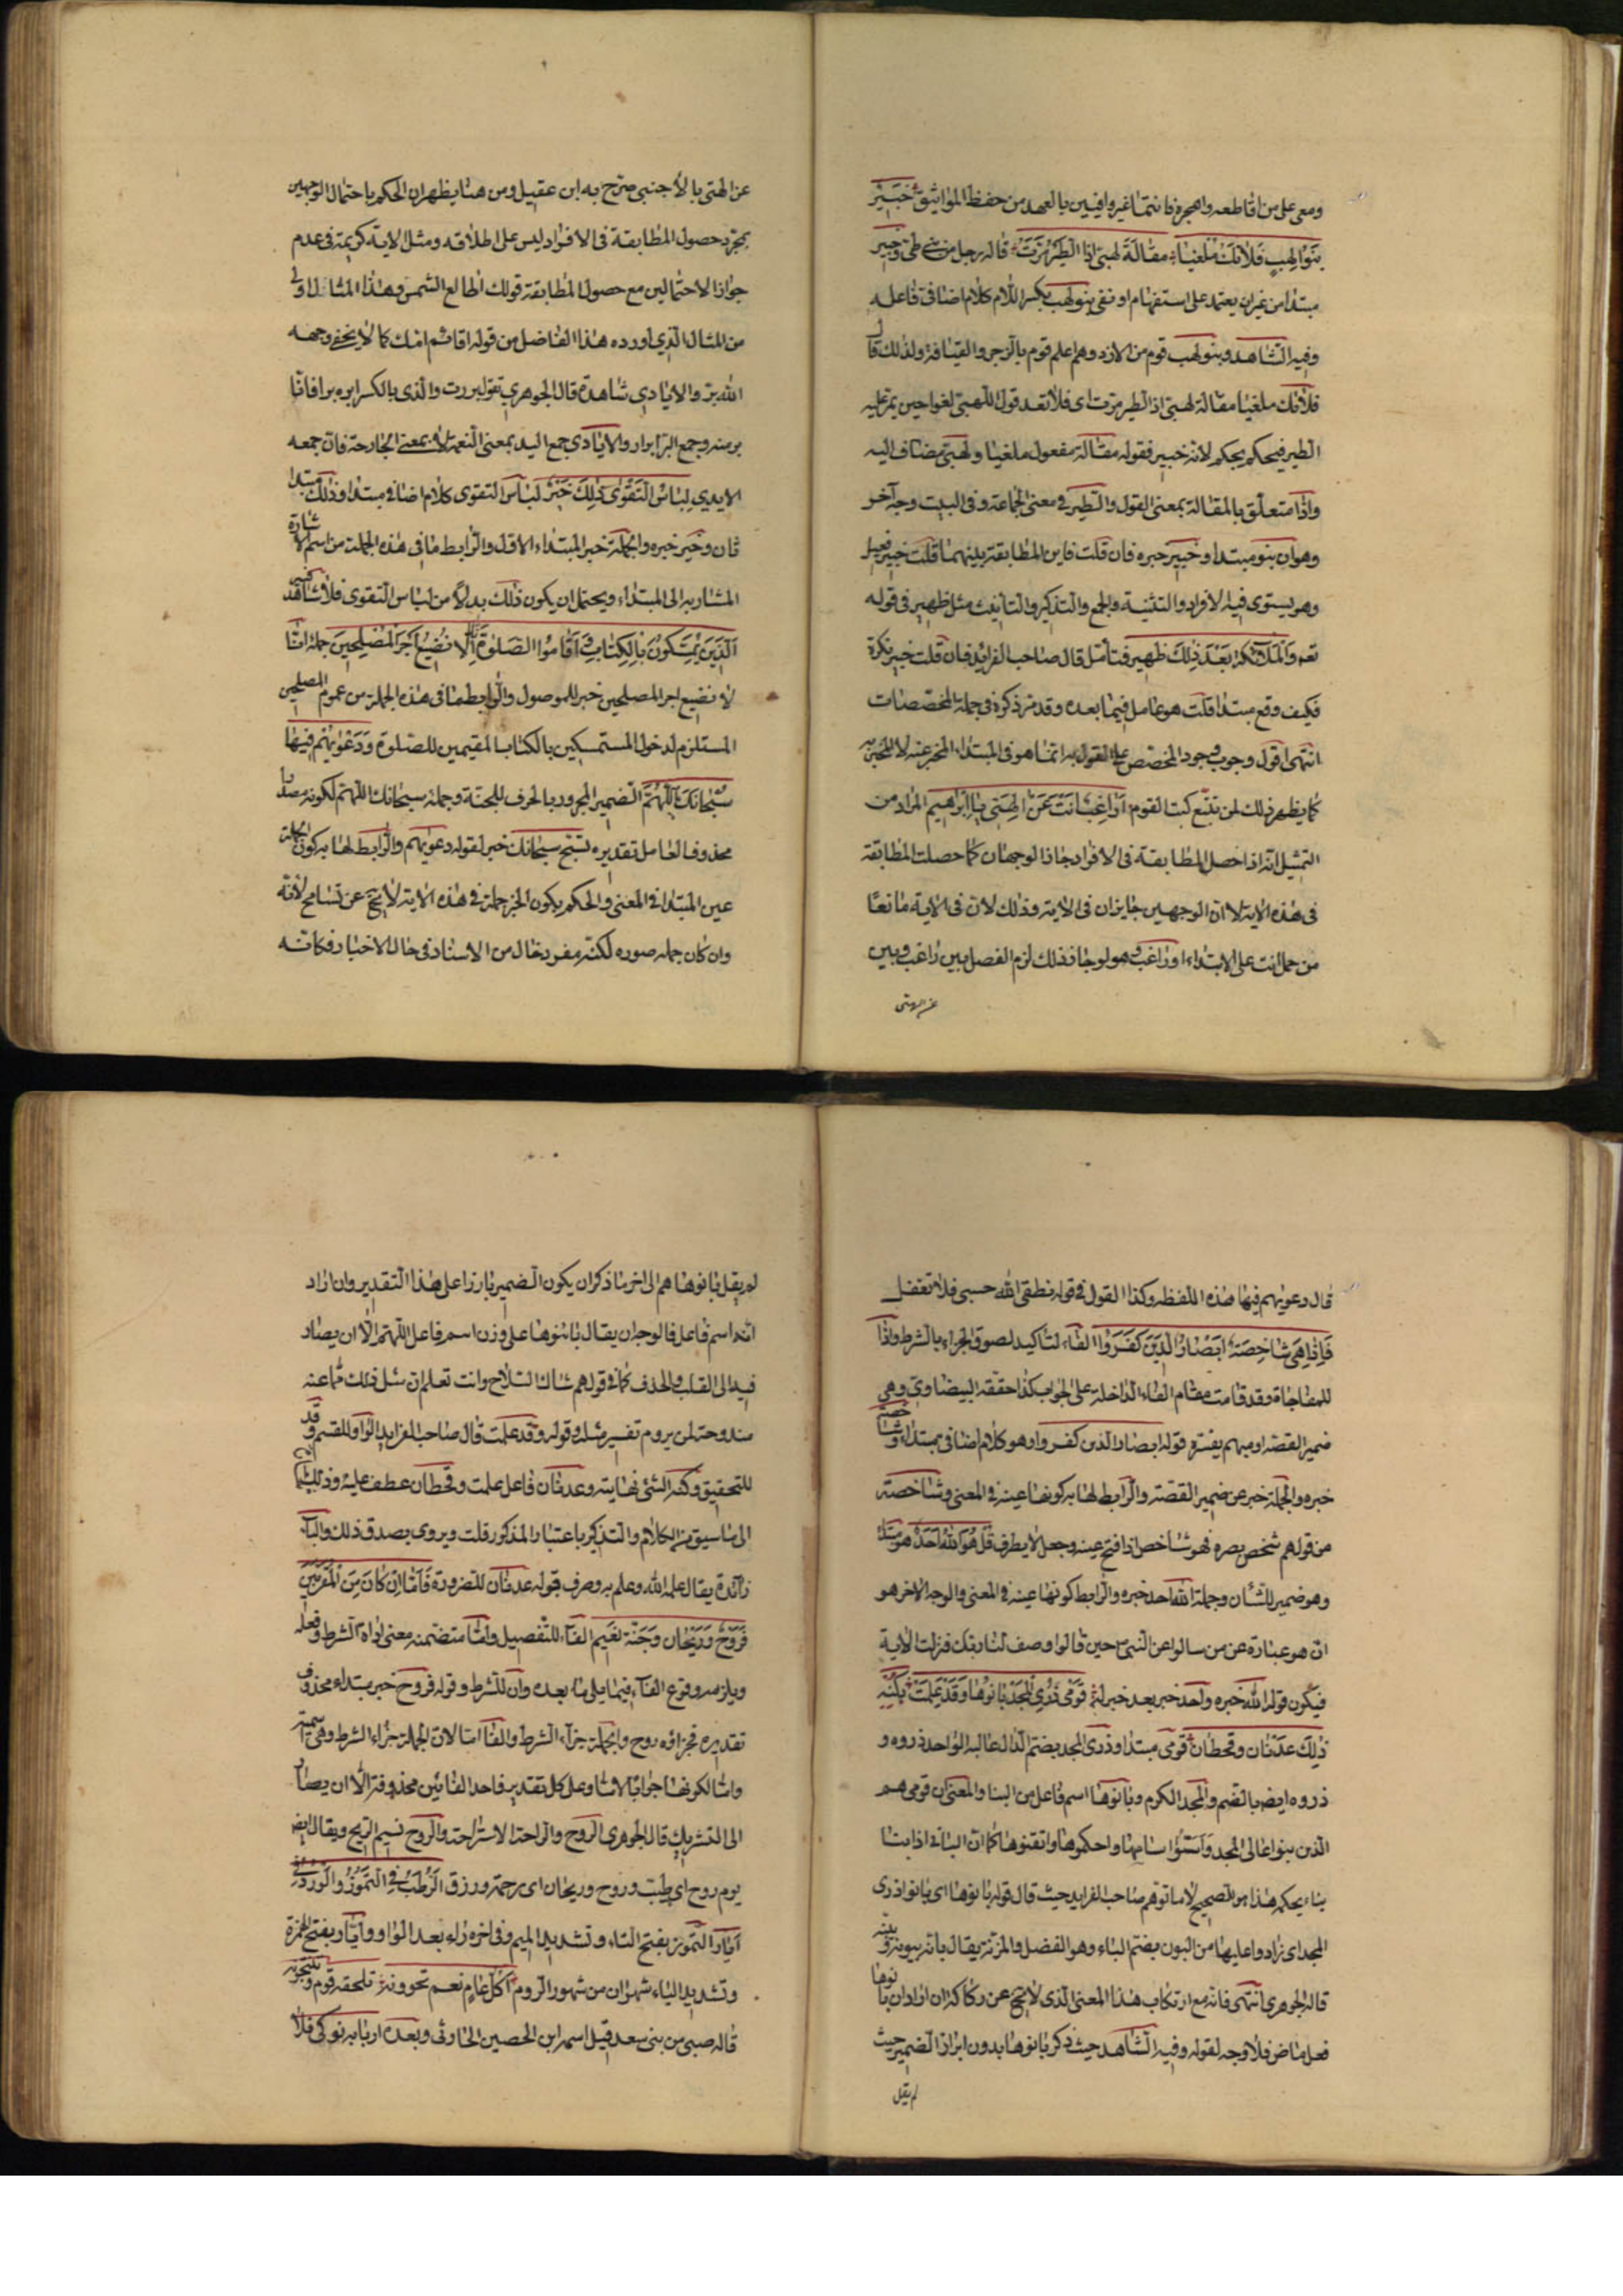 ومعى على من اقاطعه واهجره فانتما غير وافيين بالعهد من حفظ المواثيق خبير
بنو لهب فلا تك ملغيا مقالة لهبي اذا الطير مرت قاله رجل من بني طي وخبير
مبتدا من غير ان يعتمد على استفهام او نفي بنو لهب بكسر اللام كلام اضافى فاعله
وفيه الشاهد وبنو لهب قوم من الازد وهم اعلم قوم بالزجر والقيافة ولذلك قال
فلاتك ملغيا مقالة لهبي اذ الطير مرت اى فلا تعد قول اللهبي لغوا حين يمر عليه
الطير فيحكم بحكم لانه خبير فقوله مقالة مفعول ملغيا ولهبي مضاف اليه
واذا متعلق بالمقالة بمعنى القول والطير فى معنى الجماعة وفى البيت وجه آخر
وهو ان بنو مبتدا وخبير خبره فان قلت فاين المطابقة بينهما قلت خبير فعيل
وهو يستوى فيه الافراد والتثنية والجمع والتذكير والتانيث مثل ظهير فى قوله
تعه والملائكة بعد ذلك ظهير فتأمل قال صاحب الفرايد فان قلت خبير نكرة
فكيف وقع مبتدا قلت هو عامل فيما بعده وقد مر ذكره فى جملة المخصصات
انتهى اقول وجوب وجود المخصص على القول به انما هو فى المبتداء المخبر عنه لا المخبر به
كما يظهر ذلك لمن تتبع كتب القوم اراغب انت عن الهتى يا ابراهيم المراد من
التمثيل انه اذا حصل المطابقة فى الافراد جاز الوجهان كما حصلت المطابقة
فى هذه الاية لا ان الوجهين جايزان فى الاية وذلك لان فى الاية مانعا
من حمل انت على الابتداء اوراغب وهو لو جاز ذلك لزم الفصل بين راغب وبين
عن الهتى
عن الهتى بالاجنبى صرح به ابن عقيل ومن هنا يظهر ان الحكم باحتمال الوجهين
بمجرد حصول المطابقة فى الافراد ليس على اطلاقه ومثل الاية كريمة فى عدم
جواز الاحتمالين مع حصول المطابقة قولك اطالع الشمس وهذا المثال اولى
من المثال الذي اورده هذا الفاضل من قوله اقائم امك كما لا يخفى وجهه
الله بر والايادي شاهدة قال الجوهري تقول بررت والدى بالكسر ابره برا فانا
بر منه وجمع البر ابرار والايادي جمع اليد بمعنى النعمة لا بمعنى الجارحة فان جمعه
الايدي لباس التقوى ذلك خير لباس التقوى كلام اضافى مبتدا وذلك مبتدا
ثان وخير خبره والجملة خبر المبتداء الاول والرابط ما فى هذه الجملة من اسم الاشارة
المشار به الى المبتداء ويحتمل ان يكون ذلك بدلا من لباس التقوى فلا شاهد فيه
الذين يمسكون بالكتاب واقاموا الصلوة انا لا نضيع اجر المصلحين جملة انا
لا نضيع اجر المصلحين خبر للموصول والرابط ما فى هذه الجملة من عموم المصلحين
المستلزم لدخول المستمسكين بالكتاب المقيمين للصلوة ودعويهم فيها
سبحانك اللهم الضمير المجرور بالحرف للجنة وجملة سبحانك اللهم لكونه مصدرا
محذوف العامل تقديره نسبح سبحانك خبر لقوله دعويهم والرابط لها به كون الجملة
عين المبتدا فى المعنى والحكم بكون الخبر جملة فى هذه الاية لا يخ عن تسامح لانه
وان كان جملة صورة لكنه مفرد خال من الاسناد فى حال الاخبار فكانه
قال دعويهم فيها هذه اللفظة وكذا القول فى قوله نطقى الله حسبى فلا تغفل
فاذا هى شاخصة ابصار الذين كفروا الفاء لتاكيد لصوق الجزاء بالشرط واذا
للمفاجاة وقد قامت مقام الفاء الداخلة على الجواب كذا حققه البيضاوي وهى
ضمير القصة او مبهم يفسره قوله ابصار الذين كفروا وهو كلام اضافى مبتداء وشاخصة
خبره والجملة خبر عن ضمير القصة والرابط لها به كونها عينه فى المعنى وشاخصة
من قولهم شخص بصره فهو شاخص اذا فتح عينه وجعل لا يطرف قل هو الله احد هو مبتدا
وهو ضمير للشأن وجملة الله احد خبره والرابط كونها عينه فى المعنى والوجه الاخر هو
ان هو عبارة عن من سالوا عن النبى حين قالوا وصف لنا ربك فنزلت الاية
فيكون قوله الله خبره واحد خبر بعد خبر له قومى ذرى المجد بانوها وقد علمت بكنه
ذلك عدنان وقحطان قومى مبتدا وذرى المجد بضم الذال عاليه الواحد ذروه و
ذروه ايض بالضم والمجد الكرم وبانوها اسم فاعل من البنا والمعنى ان قومى هم
الذين بنوا عالى المجد واسسوا اساسها واحكموها واتقنوها كما ان البانى اذا بنا
بناء يحكم هذا هو الصحيح لا ما توهم صاحب الفرايد حيث قال قوله بانوها اى بانوا ذرى
المجد اى زادوا عليها من البون بضم الباء وهو الفضل والمزية يقال بانه يبونه وبينه
قاله الجوهرى انتهى فانه مع ارتكاب هذا المعنى الذى لا يخ عن ركاكة ان اراد ان بانوها
فعل ماض فلا وجه لقوله وفيه الشاهد حيث ذكر بانوها بدون ابراز الضمير حيث
لم يقل
لم يقل بانوها هم الى اخر ما ذكر ان يكون الضمير بارزا على هذا التقدير وان اراد
انه اسم فاعل فالوجه ان يقال بائنوها على وزن اسم فاعل اللهم الا ان يصار
فيه الى القلب والحذف كما فى قولهم شاك السلاح وانت تعلم ان مثل ذلك مما عنه
مندوحة لمن يروم تفسير مثله وقوله وقد علمت قال صاحب الفرايد الواو للقسم وقد
للتحقيق وكنه الشئ نهايته وعدنان فاعل علمت وقحطان عطف عليه وذلك
الى ما سيق من الكلام والتذكير باعتبار المذكور قلت ويروى بصدق ذلك والباء
زائدة يقال علمه الله وعلم به وصرف قوله عدنان للضرورة فاما ان كان من المقربين
فروح وريحان وجنة نعيم الفاء للتفصيل واما متضمنة معنى اداة الشرط وفعله
ويلزمه وقوع الفاء فيما يلى ما بعده وان للشرط وقوله فروح خبر مبتداء محذوف
تقديره فجزاؤه روح والجملة جزاء الشرط والفاء اما لان الجملة جزاء الشرط وهى اسمية
واما لكونها جوابا لاما وعلى كل تقدير فاحد الفائين محذوفة الا ان يصار
الى التشريك قال الجوهرى الروح والراحة الاستراحة والروح نسيم الريح ويقال ايض
يوم روح اي طيب وروح وريحان اى رحمة ورزق الرطب فى التموز والورد فى
ايار التموز بفتح التاء وتشديد الميم وفى اخره زاء بعد الواو وايار بفتح الهمزة
وتشديد الياء شهران من شهور الروم اكل عام نعم تحوونه تلحقه قوم وتنتجونه
قاله صبى من بنى سعد قيل اسمه ابن الحصين الحاوثى وبعده اربابه نوكى فلا